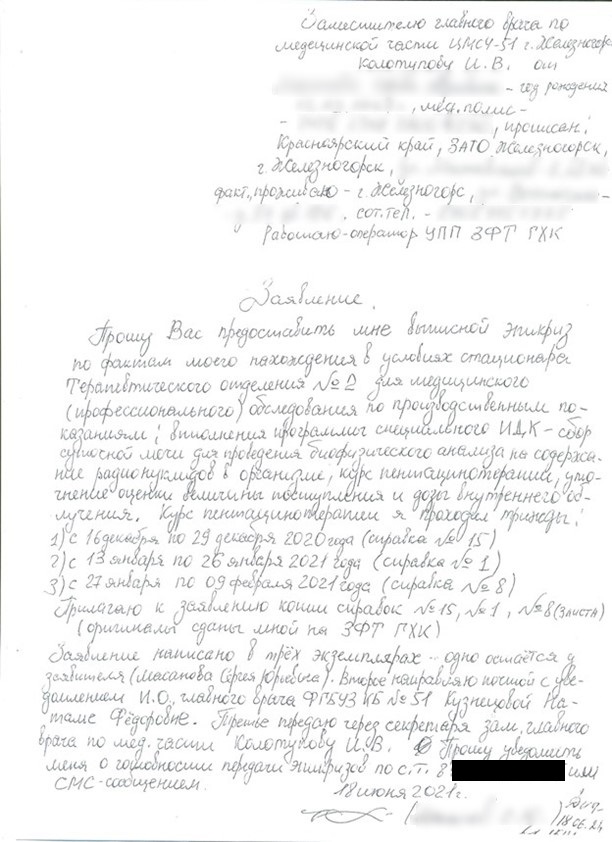 Заместителю главного врача по
медецинской части ЦМСЧ-51 г. Железногорс
Колотупову И.В. от
- год рождения
, мед. полис-
-
, прописан:
Красноярский край, ЗАТО Железногорск,
г. Железногорск,
факт. проживаю - г. Железногорс,
. сот. тел. -
Работаю-оператор УПП ЗФТ ГХК
Заявление.
Прошу Вас предоставить мне выписной эпикриз
по фактам моего нахождения в условиях стационара
Терапевтического отделения №2 для медицинского
(профессионального) обследования по производственным по-
казаниям: выполнения программы специального ИДК - сбор
суточной мочи для проведения биофизического анализа на содержа-
ние радионуклидов в организме, курс пентацинотерапии, уто-
чнение оценки величины поступления и дозы внутреннего об-
лучения. Курс пентацинотерапии я проходил трижды:
1) с 16 декабря по 29 декабря 2020 года (справка №15)
2) с 13 января по 26 января 2021 года (справка №1)
3) с 27 января по 09 февраля 2021 года (справка №8)
Прилагаю к заявлению копии справок №15, №1, №8 (3 листа)
(оригиналы сданы мной на ЗФТ ГХК)
Заявление написано в трёх экземплярах - одно остаётся у
заявителя (Масанова Сергея Юрьевича). Второе направляю почтой с уве-
домлением И.О. главного врача ФГБУЗ КБ №51 Кузнецовой На-
талье Фёдоровне. Третье передаю через секретаря зам. главного
врача по мед. части Колотупову И.В. Прошу уведомить
меня о готовности передачи эпикризов по с.т. 8 или
СМС-сообщением.
18 июня 2021 г.
(
18.06.21